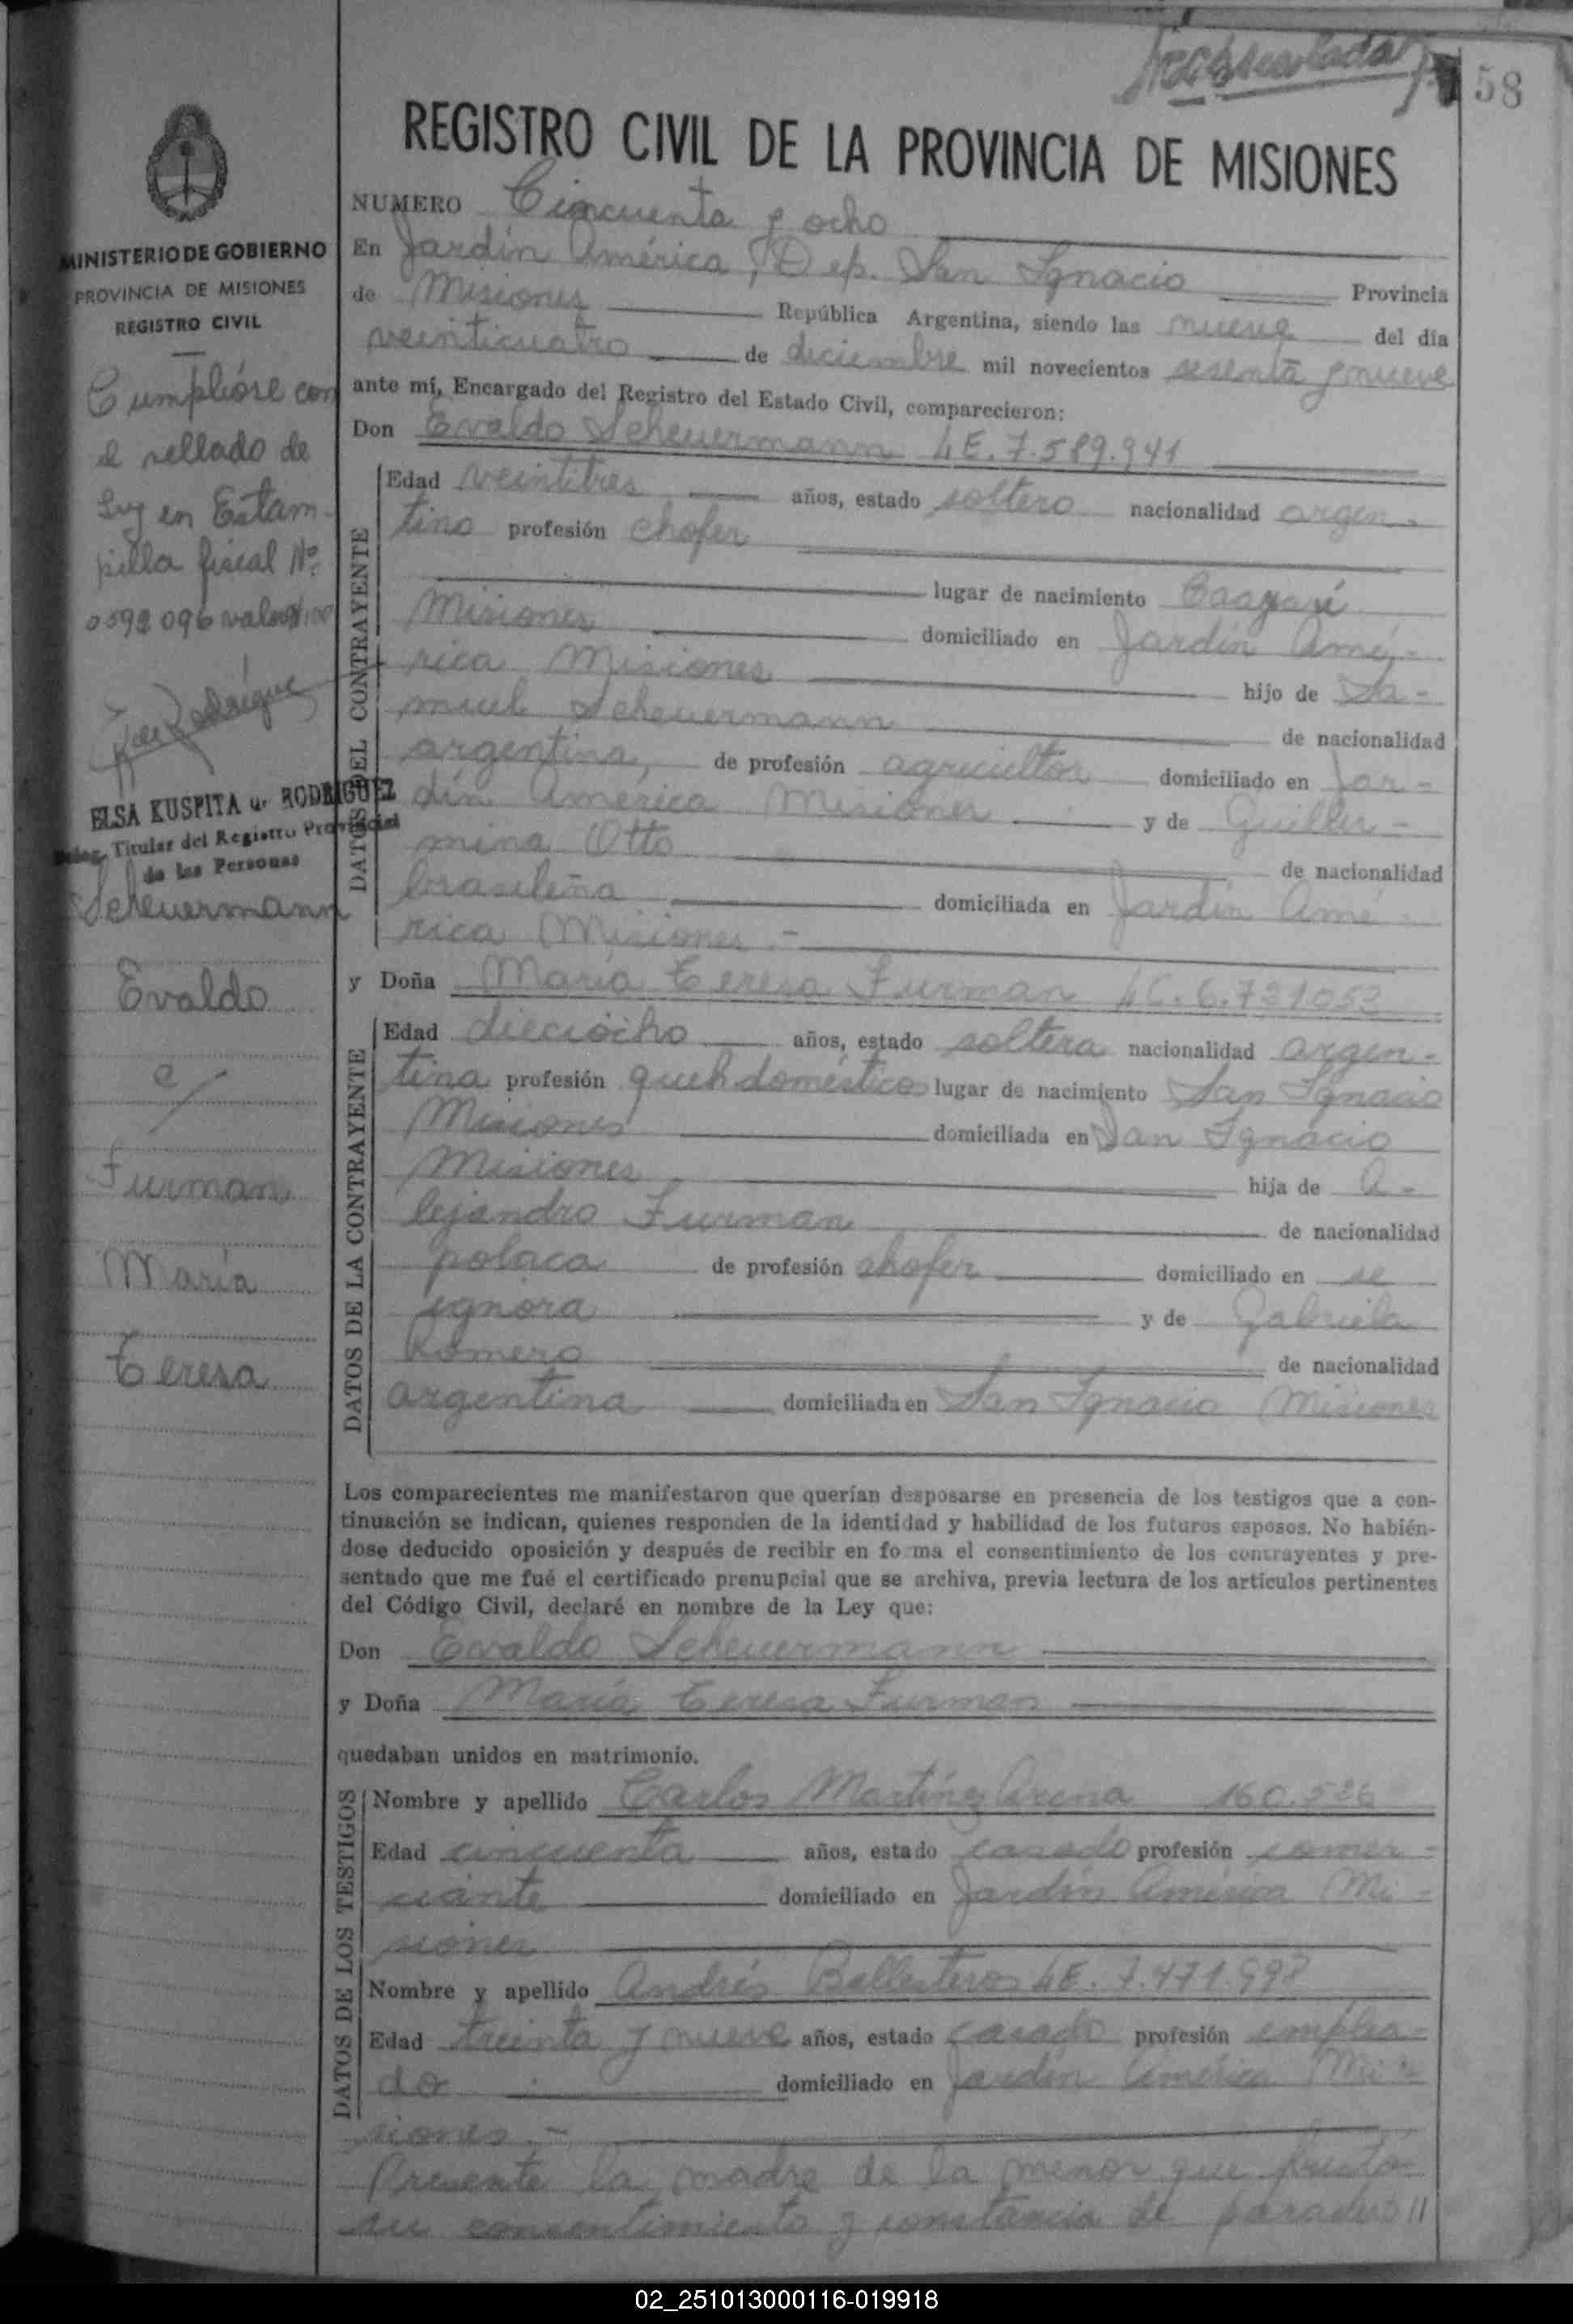 58
REGISTRO CIVIL DE LA PROVINCIA DE MISIONES
MINISTERIO DE GOBIERNO
PROVINCIA DE MISIONES
REGISTRO CIVIL
Cumplióse con
el sellado de
Ley en Estam-
pilla fiscal Nº
0592096 valor
ELSA KUSPITA de RODRIGUEZ
Titular del Registro Provincial
de las Personas
Scheuermann
Evaldo
c/
Furman
María
Teresa
NUMERO Cincuenta y ocho
En Jardín América, Dep. San Ignacio Provincia
de Misiones República Argentina, siendo las nueve del día
veinticuatro de diciembre mil novecientos sesenta y nueve
ante mí, Encargado del Registro del Estado Civil, comparecieron:
Don Evaldo Scheuermann LE. 7.589.941
DATOS DEL CONTRAYENTE
Edad veintitres años, estado soltero nacionalidad argen-
tino profesión chofer
lugar de nacimiento Caaguarí
Misiones domiciliado en Jardín Amé-
rica Misiones hijo de Sa-
muel Scheuermann de nacionalidad
argentina, de profesión agricultor domiciliado en Jar-
dín América Misiones y de Guiller-
mina Otto de nacionalidad
brasileña domiciliada en Jardín Amé-
rica Misiones.-
y Doña María Teresa Furman LC. 6.731053
DATOS DE LA CONTRAYENTE
Edad dieciocho años, estado soltera nacionalidad argen-
tina profesión queh. domésticos lugar de nacimiento San Ignacio
Misiones domiciliada en San Ignacio
Misiones hija de A-
lejandro Furman de nacionalidad
polaca de profesión chofer domiciliado en se
ignora y de Gabriela
Romero de nacionalidad
argentina domiciliada en San Ignacio Misiones
Los comparecientes me manifestaron que querían desposarse en presencia de los testigos que a con-
tinuación se indican, quienes responden de la identidad y habilidad de los futuros esposos. No habién-
dose deducido oposición y después de recibir en fo ma el consentimiento de los contrayentes y pre-
sentado que me fué el certificado prenupcial que se archiva, previa lectura de los artículos pertinentes
del Código Civil, declaré en nombre de la Ley que:
Don Evaldo Scheuermann
y Doña María Teresa Furman
quedaban unidos en matrimonio.
DATOS DE LOS TESTIGOS
Nombre y apellido Carlos Martínez Arena 160.526
Edad cincuenta años, estado casado profesión comer-
ciante domiciliado en Jardín América Mi-
siones
Nombre y apellido Andrés Ballesteros LE. 7.471.997
Edad treinta y nueve años, estado casado profesión emplea-
do domiciliado en Jardín América Mi-
siones.-
Presente la madre de la menor que prestó
su consentimiento y constancia de paradero //
02_251013000116-019918